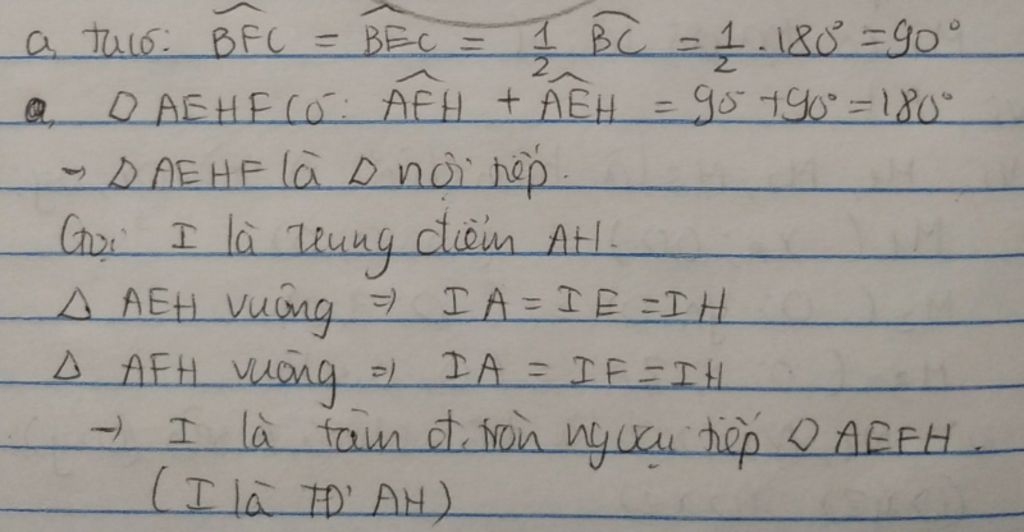 a, ta có: BFC = BEC = 1/2 BC = 1/2 . 180° = 90°
a, ◇ AEHF có: AFH + AEH = 90 + 90° = 180°
→ ◇ AEHF là ◇ nội tiếp.
Gọi I là trung điểm AH.
△ AEH vuông ⇒ IA = IE = IH
△ AFH vuông ⇒ IA = IF = IH
→ I là tâm đ.tròn ngoại tiếp ◇ AEFH.
(I là TĐ' AH)